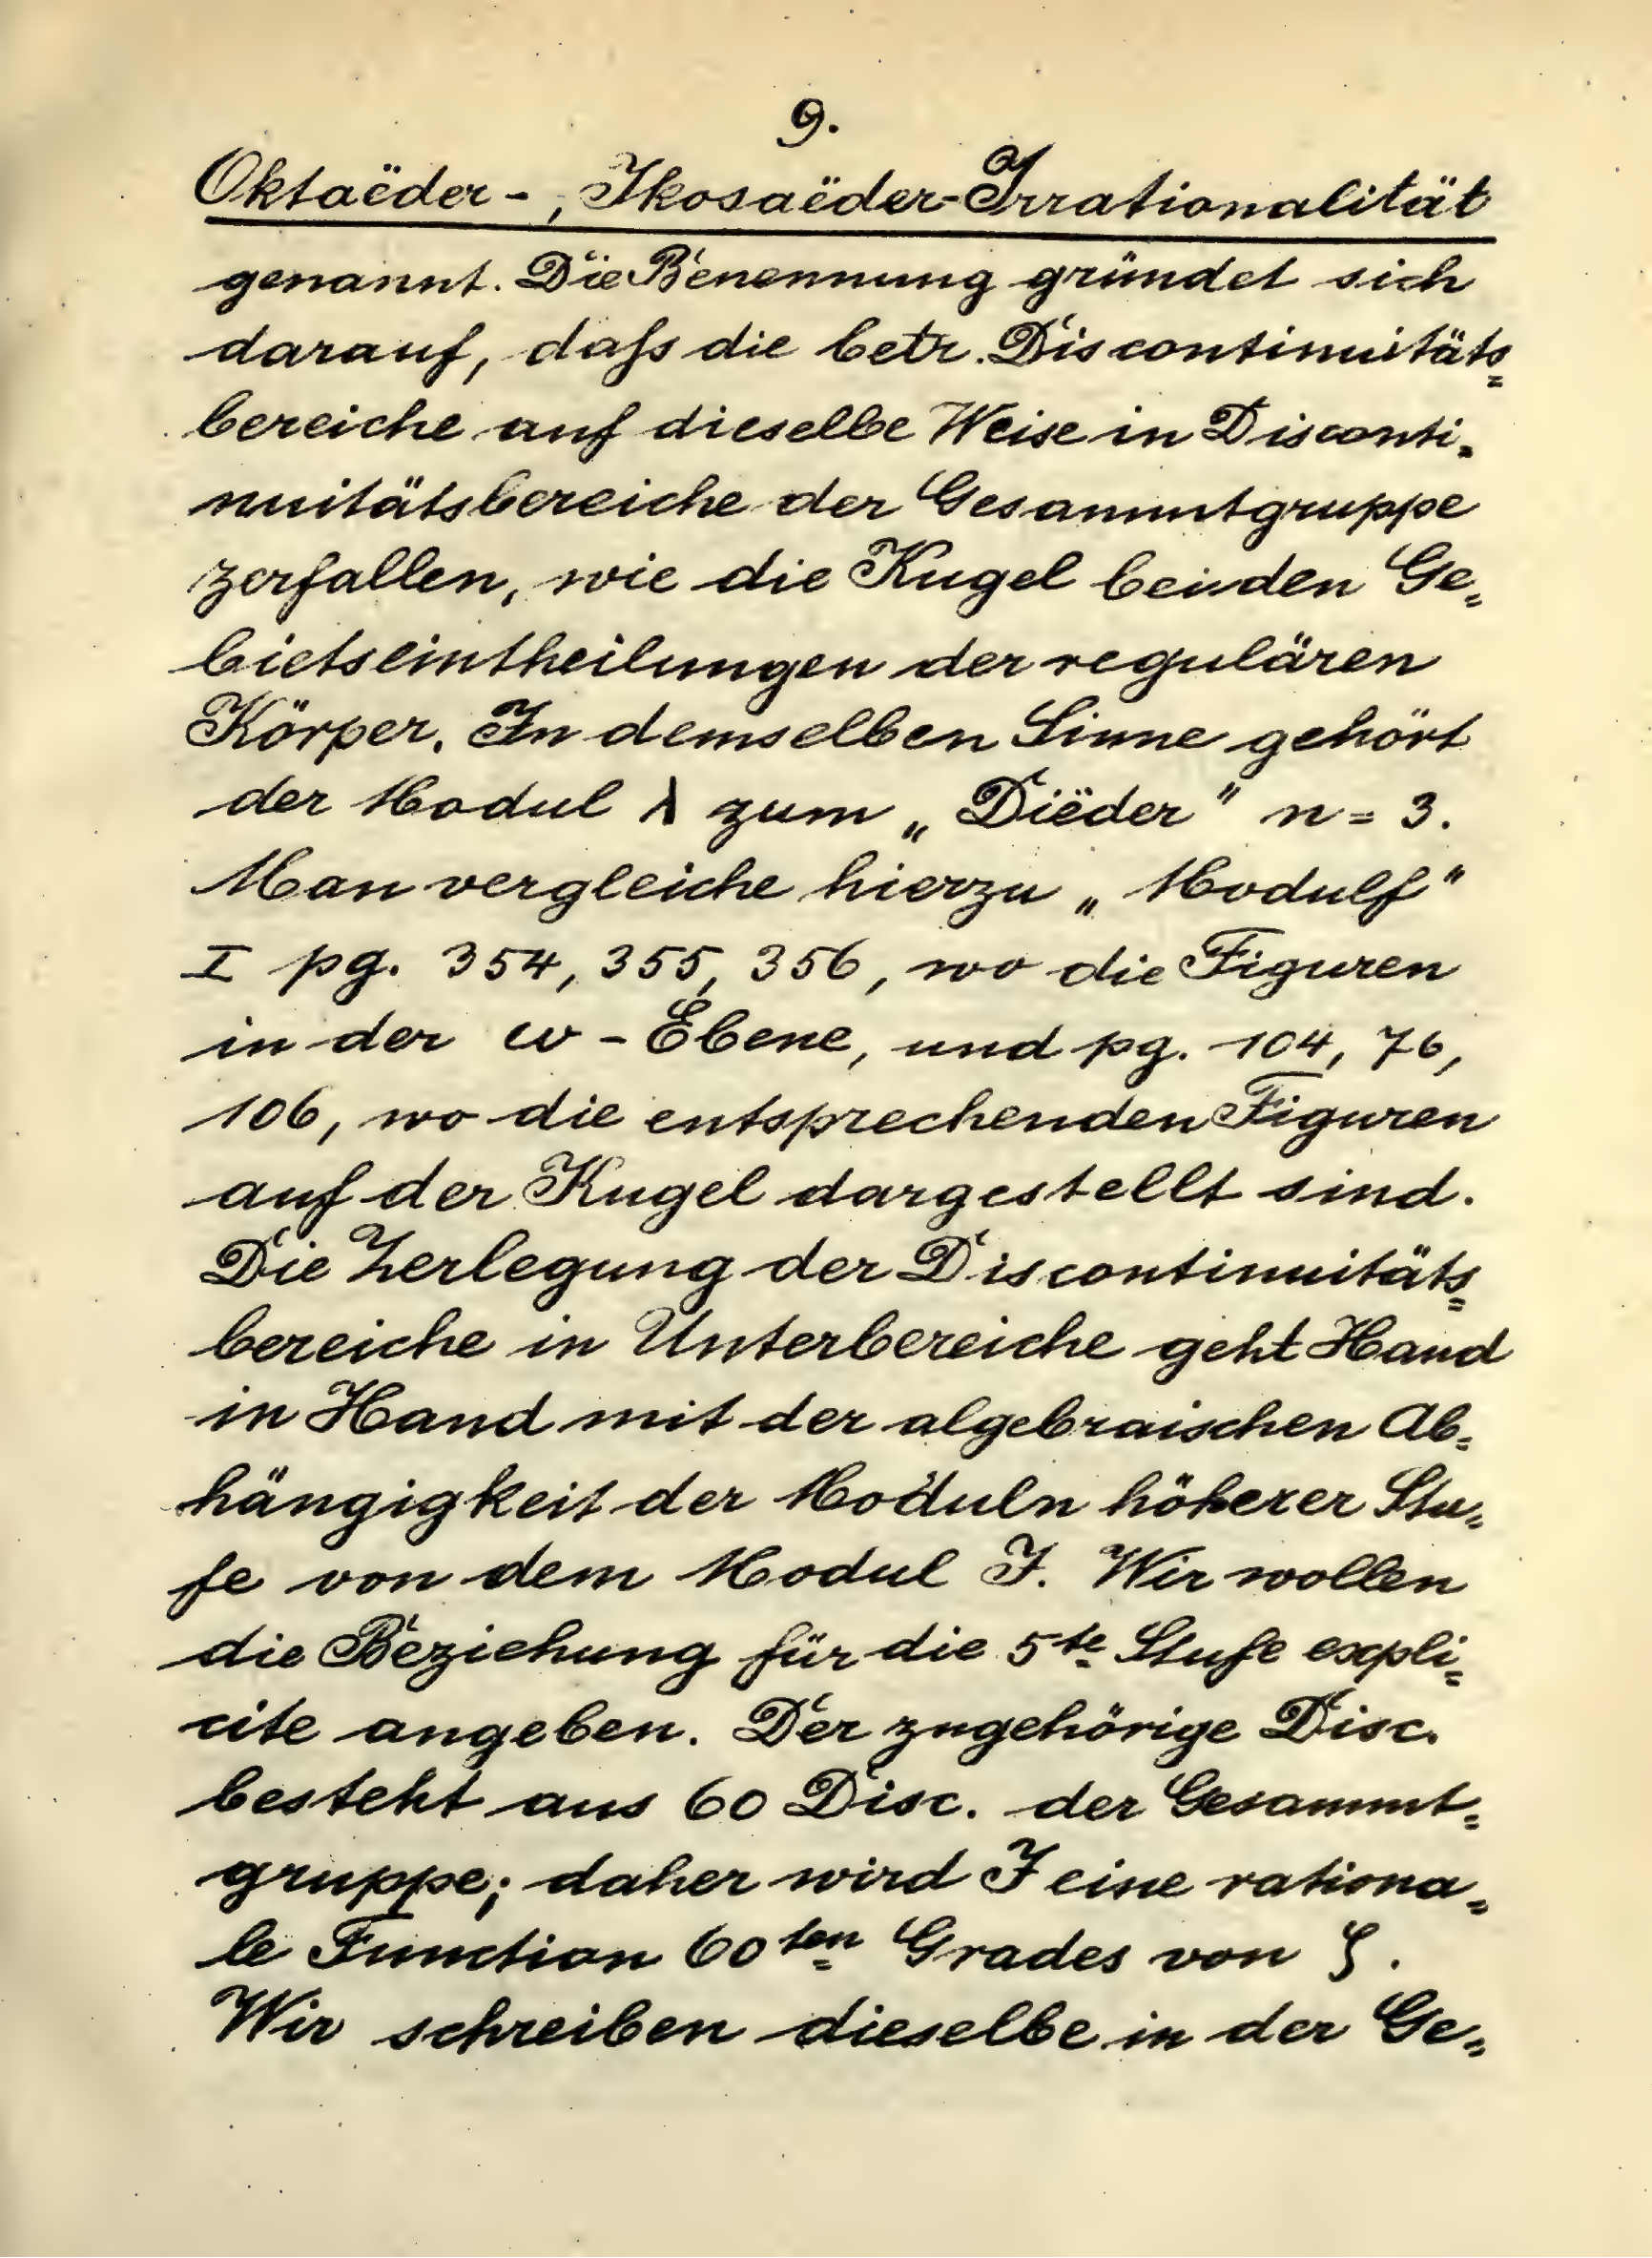 9.
Oktaëder-, Ikosaëder-Irrationalität
genannt. Die Benennung gründet sich
darauf, dafs die betr. Discontinuitäts=
bereiche auf dieselbe Weise in Disconti=
nuitätsbereiche der Gesammtgruppe
zerfallen, wie die Kugel bei den Ge=
bietseintheilungen der regulären
Körper. In demselben Sinne gehört
der Modul λ zum „Diëder" n = 3.
Man vergleiche hierzu „Modulf"
I pg. 354, 355, 356, wo die Figuren
in der ω-Ebene, und pg. 104, 76,
106, wo die entsprechenden Figuren
auf der Kugel dargestellt sind.
Die Zerlegung der Discontinuitäts=
bereiche in Unterbereiche geht Hand
in Hand mit der algebraischen Ab=
hängigkeit der Moduln höherer Stu=
fe von dem Modul J. Wir wollen
die Beziehung für die 5te Stufe expli=
cite angeben. Der zugehörige Disc.
besteht aus 60 Disc. der Gesammt=
gruppe; daher wird J eine rationa=
le Function 60ten Grades von ζ.
Wir schreiben dieselbe in der Ge=